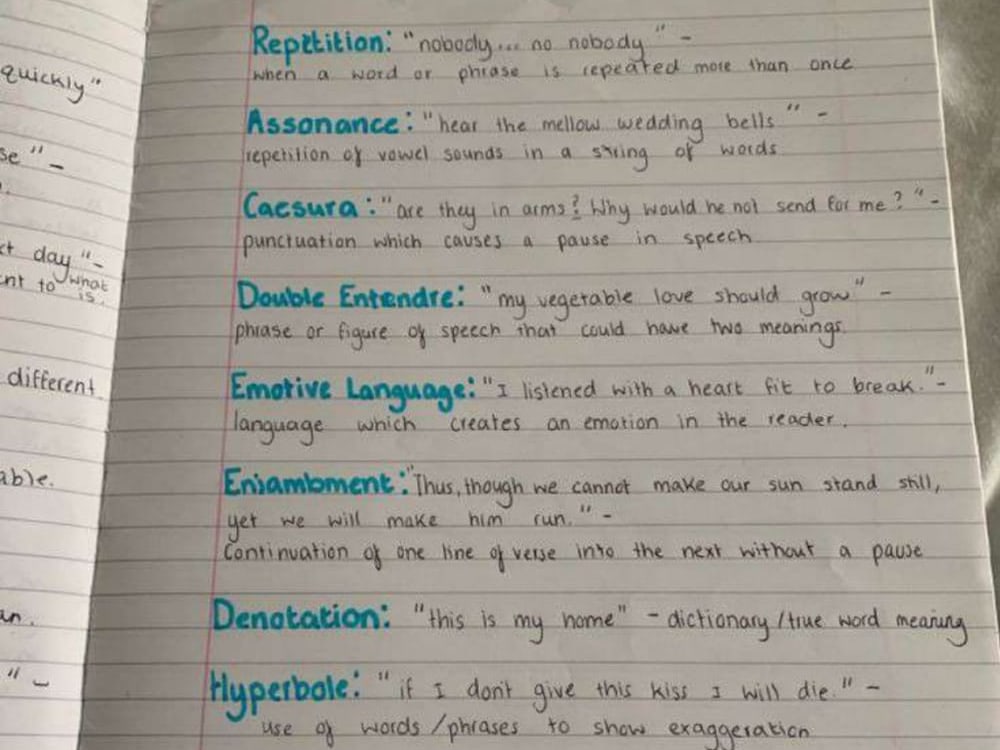 quickly"
se" -
ct day" -
nt to what
is.
different
able.
an.
" -
Repetition: "nobody... no nobody" -
when a word or phrase is repeated more than once
Assonance: "hear the mellow wedding bells" -
repetition of vowel sounds in a string of words
Caesura: "are they in arms? Why would he not send for me?" -
punctuation which causes a pause in speech
Double Entendre: "my vegetable love should grow" -
phrase or figure of speech that could have two meanings.
Emotive Language: "I listened with a heart fit to break." -
language which creates an emotion in the reader.
Enjambment: "Thus, though we cannot make our sun stand still,
yet we will make him run." -
Continuation of one line of verse into the next without a pause
Denotation: "this is my home" - dictionary/true word meaning
Hyperbole: "if I don't give this kiss I will die." -
use of words/phrases to show exaggeration